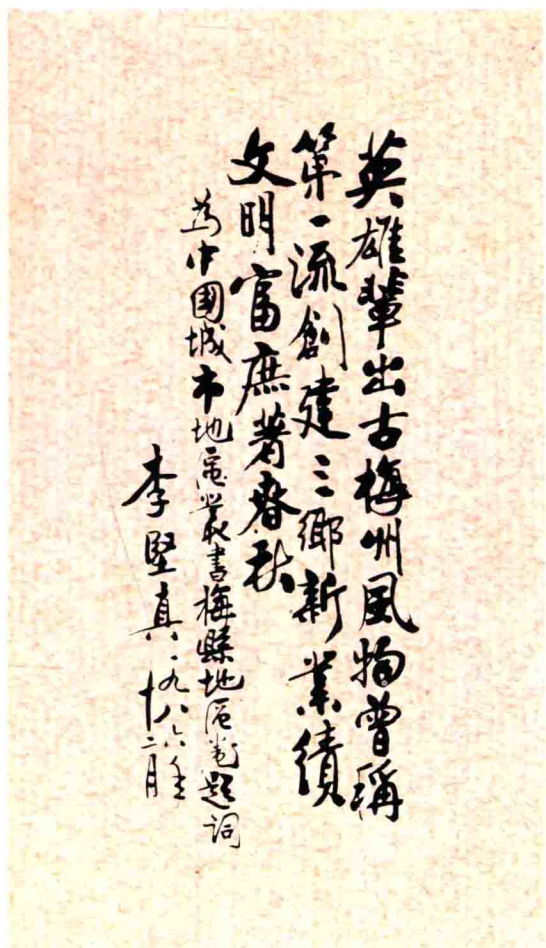 英雄輩出古梅州風物曾稱
第一流創建三鄉新業績
文明富庶著春秋
為中國城市地區叢書梅縣地區卷題詞
李堅真一九八六年
十二月